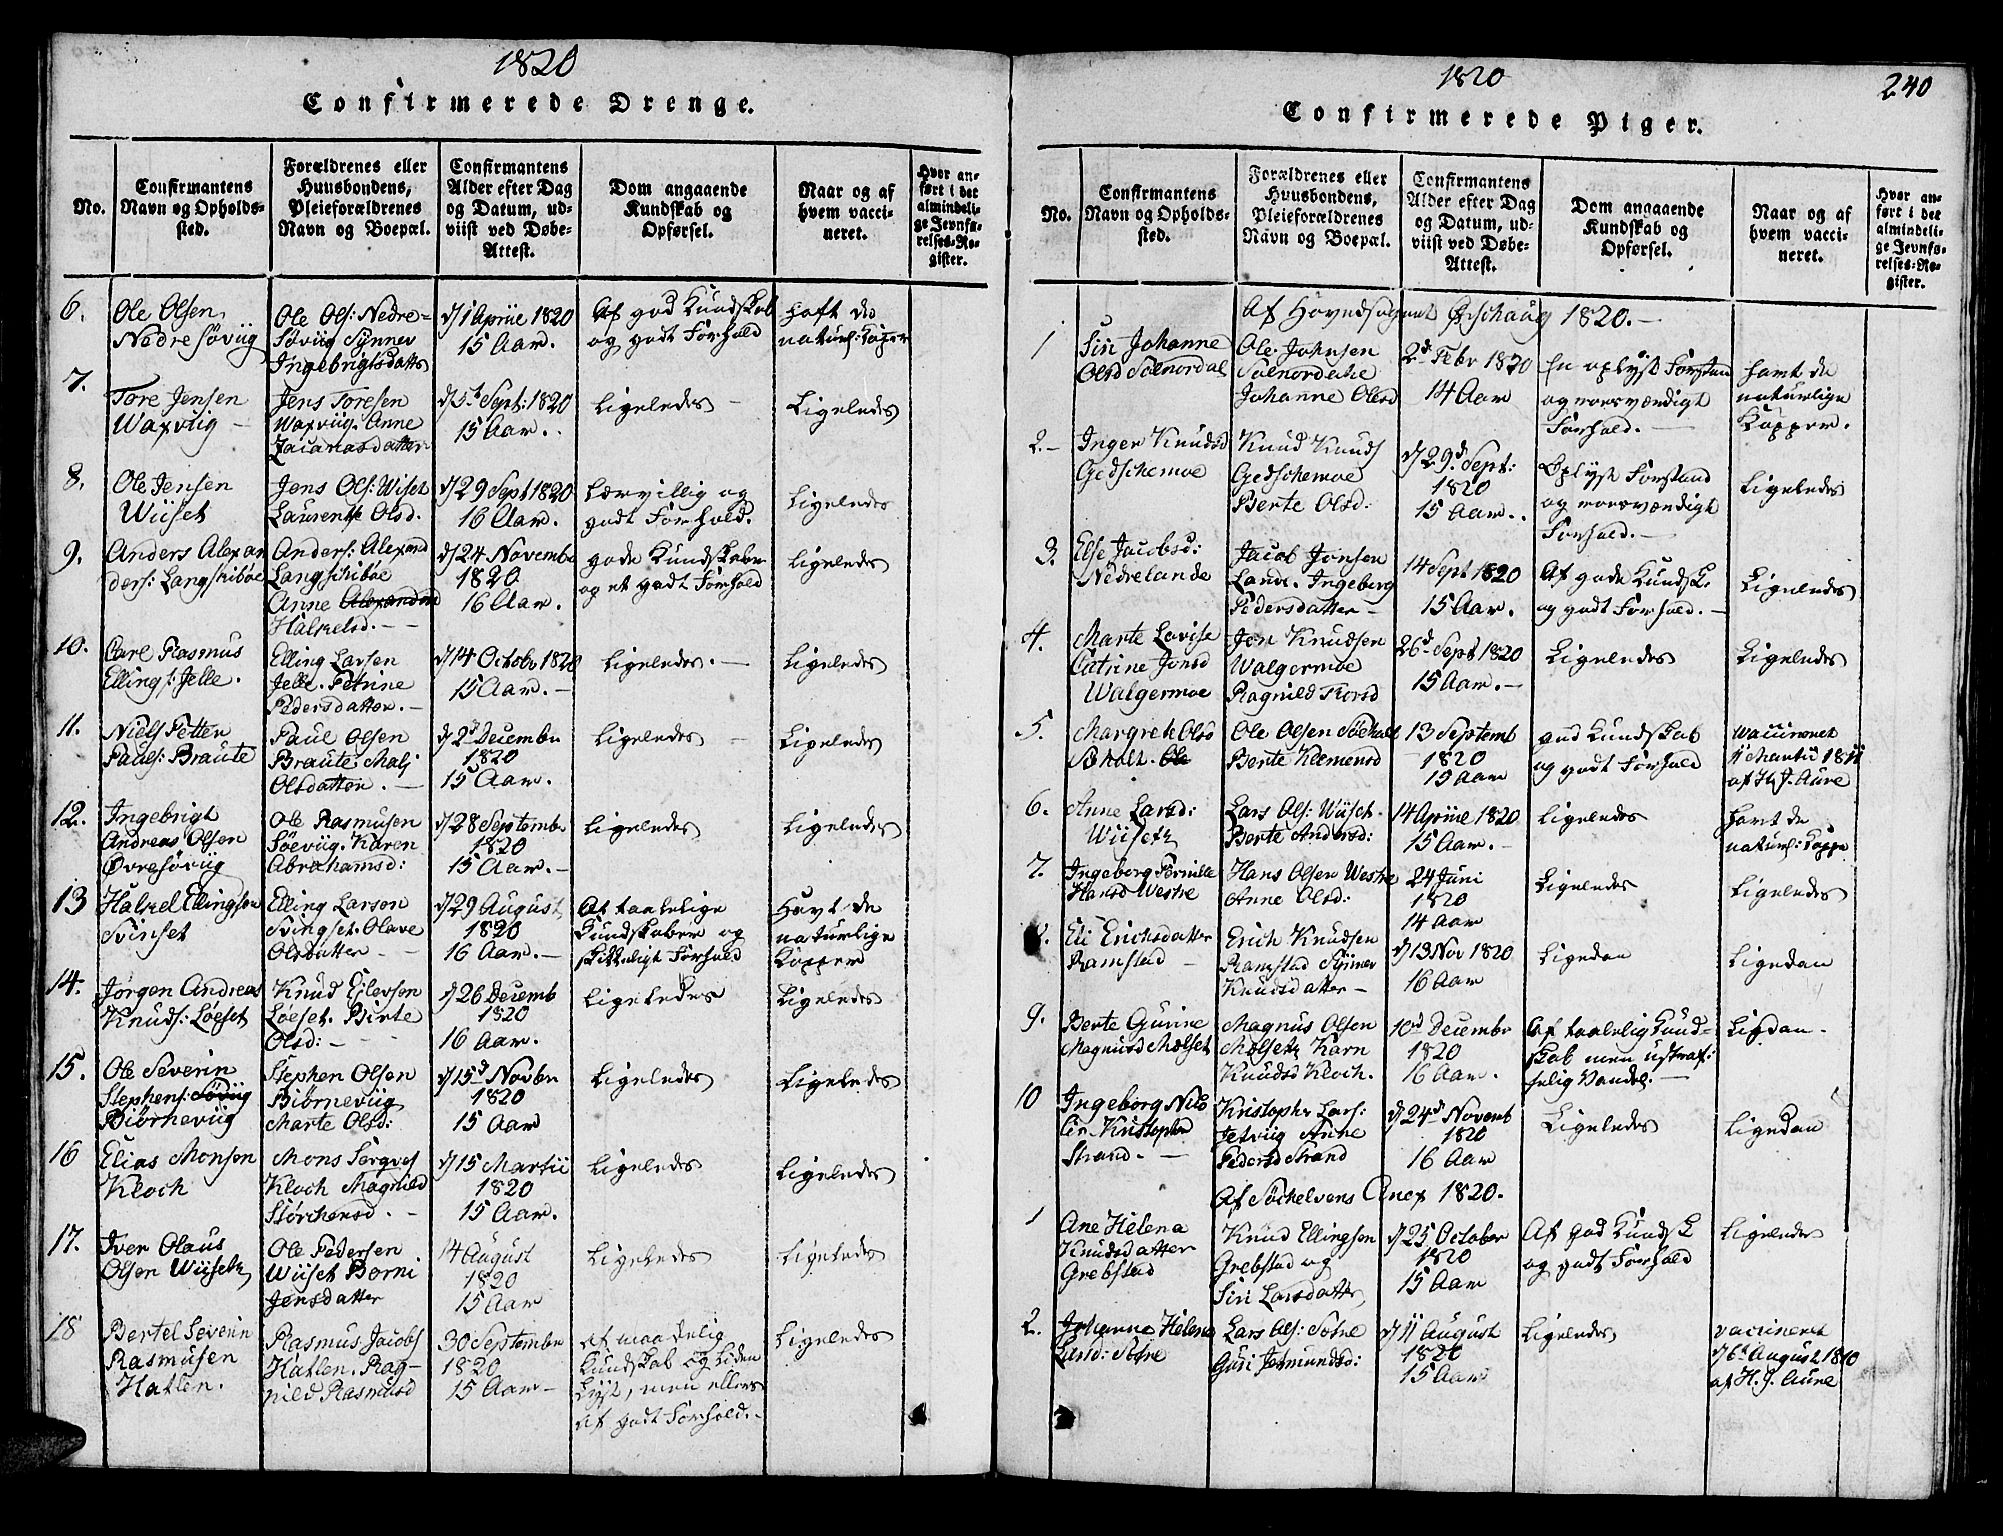 1820
Confirmerede Drenge.
No.
Confirmantens
Navn og Opholds-
sted.
Forældrenes eller
Huusbondens,
Pleieforældrenes
Navn og Boepæl.
Confirmantens
Alder efter Dag
og Datum, ud-
viist ved Døbe-
Attest.
Dom angaaende
Kundskab og
Opførsel.
Naar og af
hvem vacci-
neret.
Hvor an-
ført i det
almindeli-
ge Jevnfø-
relses-Re-
gister.
6.
Ole Olsen
Nedre Søviig
Ole Ols: Nedre-
Søviig Synnev
Ingebrigtsdatter
d/1 Apriie 1820
15 Aar.
Af god Kundskab
og godt Forhold
haft de
naturl: Kopper
7.
Tore Jensen
Waxviig -
Jens Toresen
Waxviig. Anne
Zacariasdatter
Sept: 1820
15 Aar.
Ligeledes -
Ligeledes
8.
Ole Jensen
Wiiset
Jens Ols: Wiset
Laurentse Olsd.
d/29 Sept 1820
16 Aar.
Lærvillig og
godt Forhold.
Ligeledes
9.
Anders Alexan
ders: Langschibøe
Anders: Alexand
Langschibøe
Anne Alexandrd
Halkelsd. -
d/24 Novembr
1820
16 Aar.
gode Kundskaber
og et godt Forhold
Ligeledes
10.
Carl Rasmus
Ellings: Jelle.
Elling Larsen
Jelle. Petrine
Pedersdatter. -
d/14 Octobr 1820
15 Aar. -
Ligeledes. -
Ligeledes
11.
Niels Petter
Pauls: Braute
Paul Olsen
Braute. Mali
Olsdatter. -
d/2d Decembr
1820
15 Aar.
Ligeledes -
Ligeledes
12.
Ingebrigt
Andreas Olsen
Øvresøviig
Ole Rasmusen
Søeviig. Karen
Abrahamsd:
d/28 Septembr
1820
15 Aar. -
Ligeledes
Ligeledes
13
Halkel Ellingsen
Svinset
Elling Larsen
Svingset. Olave
Olsdatter -
d/29 August
1820
16 Aar. -
Af taalelige
Kundskaber og
skikkeligt Forhold
Havt de
naturlige
Kopper
14.
Jørgen Andreas
Knuds: Løeset
Knud Eilevsen
Løeset. Birte
Olsd: - - -
d/26 Decemb
1820
16 Aar.
Ligeledes
Ligeledes
15.
Ole Severin
Stephens: Søviig
Biørneviig
Stephen Olsen
Biørneviig
Marte Olsd:
d/15d Novbr
1820
15 Aar
Ligeledes
Ligeledes
16
Elias Monsen
Kloch
Mons
Kloch Magnild
Størchersd. -
d/15 Martii
1820
15 Aar.
Ligeledes
Ligeledes
17.
Iver Olaus
Olsen Wiiseth
Ole Pedersen
Wiiset Berni
Jensdatter
14 August
1820
15 Aar
Ligeledes
Ligeledes
18
Bertel Severin
Rasmusen
Hatlen.
Rasmus Jacobs
Hatlen. Rag-
nild Rasmusd
30 Septembr
1820
15 Aar -
af maadelig
Kundskab og liden
Lyst, men ellers
af godt Forhold. -
Ligeledes
1820
240
Confirmerede Piger.
No.
Confirmantens
Navn og Opholds-
sted.
Forældrenes eller
Huusbondens,
Pleieforældrenes
Navn og Boepæl.
Confirmantens
Alder efter Dag
og Datum, ud-
viist ved Døbe-
Attest.
Dom angaaende
Kundskab og
Opførsel.
Naar og af
hvem vacci-
neret.
Hvor an-
ført i det
almindeli-
ge Jevnfø-
relses-Re-
gister.
Af Hovedsognet Ørschaug 1820. -
1
Siri Johanne
Olsd Solnørdal
Ole Johnsen
Johanne Olsd
2d Febr 1820
14 Aar
En oplyst Forstand
og rorsværdigt
Forhold. -
Havt de
naturlige
Kopper.
2. -
Inger Knudsd
Gedschemoe
Knud Knuds
Gedschemoe
Berte Olsd:
d/29d Sept:
1820
15 Aar.
Oplyst Forstand
og rorsværdigt
Forhold. -
Ligeledes
3.
Else Jacobsd:
Nedrelande
Jacob Jonsen
Lande. Ingeborg
Pedersdatter -
14 Sept 1820
15 Aar.
Af gode Kundsk:
og godt Forhold. -
Ligeledes
4.
Marte Lovise
Catrine Jonsd
Walgermoe
Jon Knudsen
Walgermoe
Ragnild Torsd
26d Sept 1820
15 Aar. -
Ligeledes
Ligeledes
5.
Margrete Olsd
Søholt. Ole
Ole Olsen Søeholt
Berte Klemensd
13 Septemb
1820
15 Aar
god Kundskab
og godt Forhold
Vaccineret
11 Martii 1811
af H. J. Aure
6.
Anne Larsd:
Wiiseth
Lars Ols: Wiiset.
Berte Andersd:
14 Apriie 1820
15 Aar. -
Ligeledes
havt de
naturl: Koppe
7.
Ingeborg Pernille
Hansd Westre
Hans Olsen Westre
Anne Olsd:
24 Juni
1820
14 Aar
Ligeledes
Ligeledes
Eli Erichsdatter
Ramstad -
Erich Knudsen
Ramstad Synnev
Knudsdatter -
d/13 Nov 1820
16 Aar
Ligedan
Ligedan
9.
Berte Gurine
Magnusd Molset
Magnus Olsen
Molseth Karn
Knudsd Kloch.
10d Decembr
1820
16 Aar.
Af taalelig Kund-
skab men ustraf:
felig Vandel. -
Ligedan -
10
Ingeborg Nico
lin. Kristophd
Strand. -
Kristophr Lars:
Jetviig Anne
Pedersd Strand
d/24d Novemb
1820
16 Aar
Ligeledes
Ligedan
Af Søchelvens Anex 1820.
1
Ane Helena
Knudsdatter
Grebstad
Knud Ellingsen
Grebstad og
Siri Larsdatter
d/25 October
1820
15 Aar
Af god Kundsk
og godt Forhold
Ligeledes
2.
Johanne Helena
Larsd: Sofre
Lars Ols: Sofre
Guri Jetmundsd:
d/11 August
1820
15 Aar
Ligeledes
Vaccineret
d/6d August 1810
af H. J. Aure